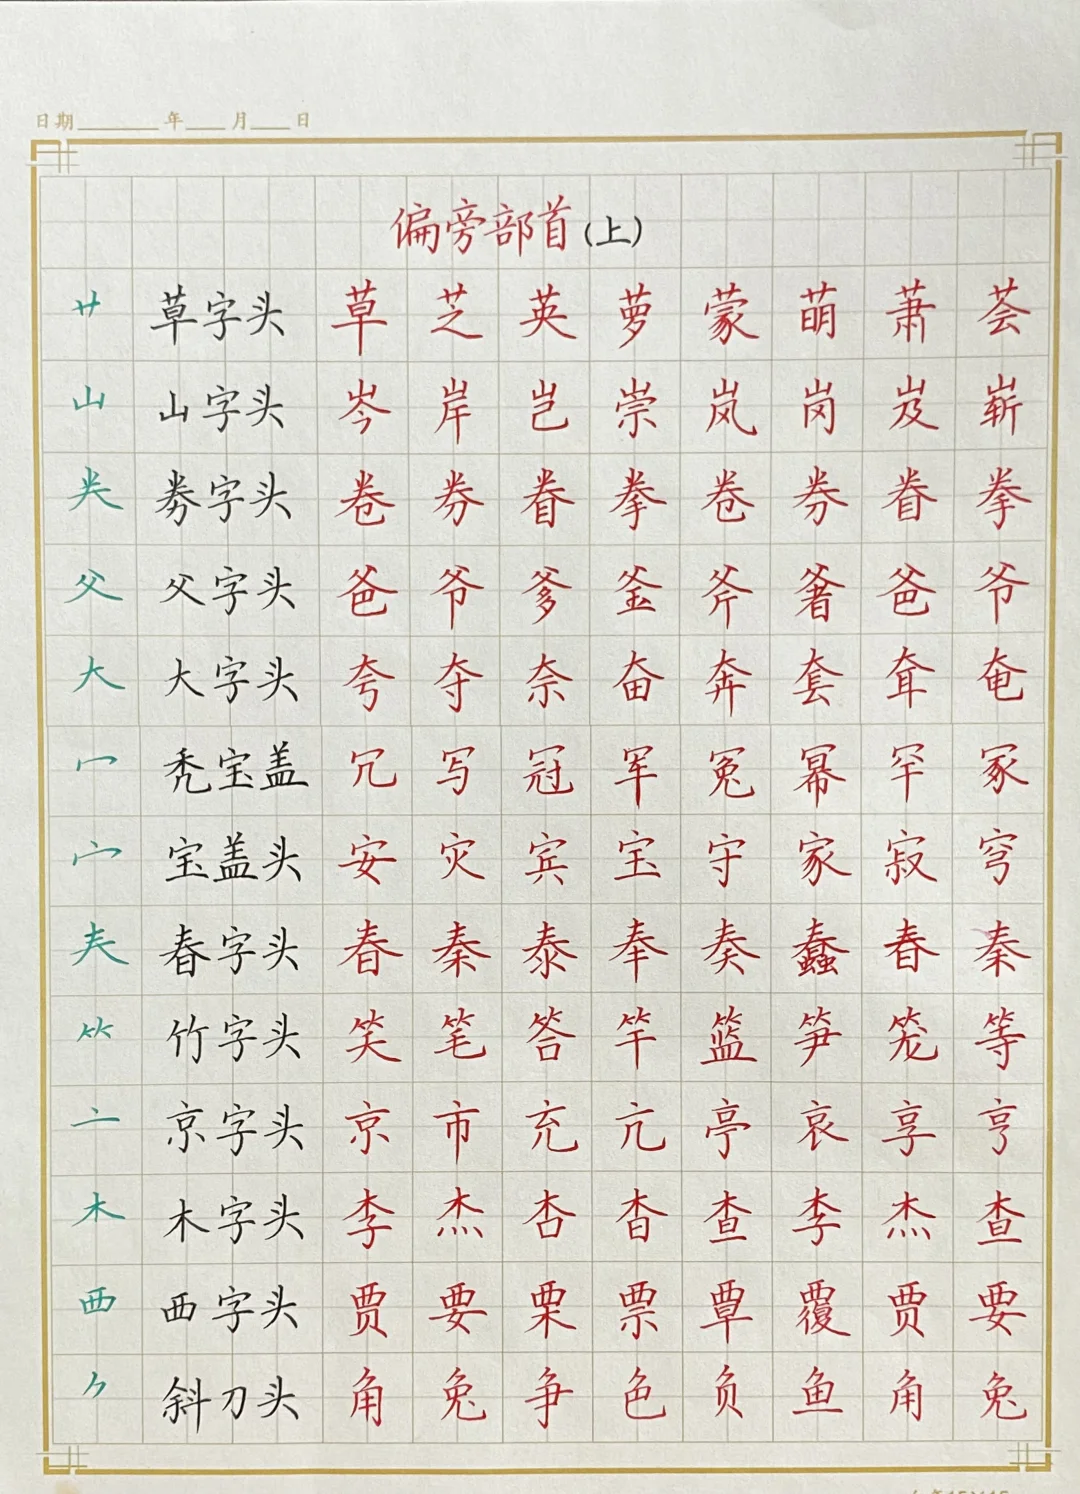 日期 年 月 日
偏旁部首(上)
艹 草字头 草 芝 英 萝 蒙 萌 萧 荟
山 山字头 岑 岸 岂 崇 岚 岗 岌 崭
龹 券字头 卷 券 眷 拳 卷 券 眷 拳
父 父字头 爸 爷 爹 釜 斧 爸 爷
大 大字头 夸 夺 奈 奋 奔 套 耷 奄
冖 秃宝盖 冗 写 冠 军 冤 幂 罕 冢
宀 宝盖头 安 灾 宾 宝 守 家 寂 穹
𡗗 春字头 春 秦 泰 奉 奏 蠢 春 秦
⺮ 竹字头 笑 笔 答 竿 篮 笋 笼 等
亠 京字头 京 市 充 亢 亭 哀 享 亨
木 木字头 李 杰 杏 杳 查 李 杰 查
西 西字头 贾 要 栗 票 覃 覆 贾 要
⺈ 斜刀头 角 兔 争 色 负 鱼 角 兔